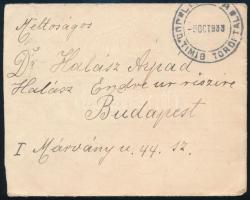 Méltóságos
Dr Halász Árpád
Halász Endre ur részére
Budapest
I Márvány u. 44. sz.
OCT 1933